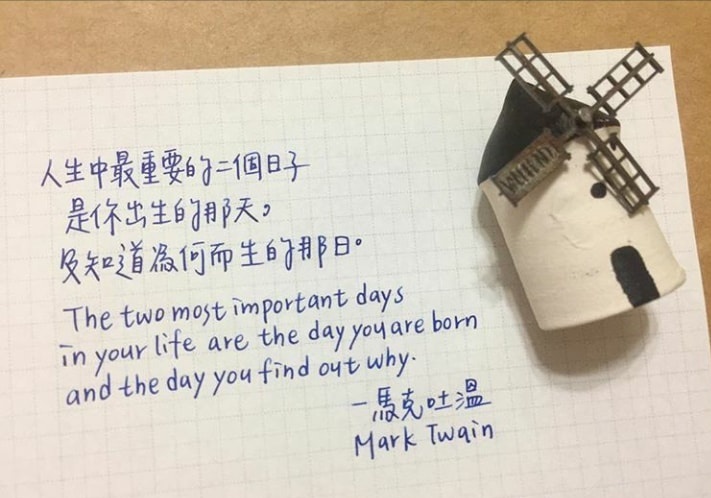 人生中最重要的二個日子
是你出生的那天。
及知道為何而生的那日。
The two most important days
in your life are the day you are born
and the day you find out why.
—馬克吐溫
Mark Twain